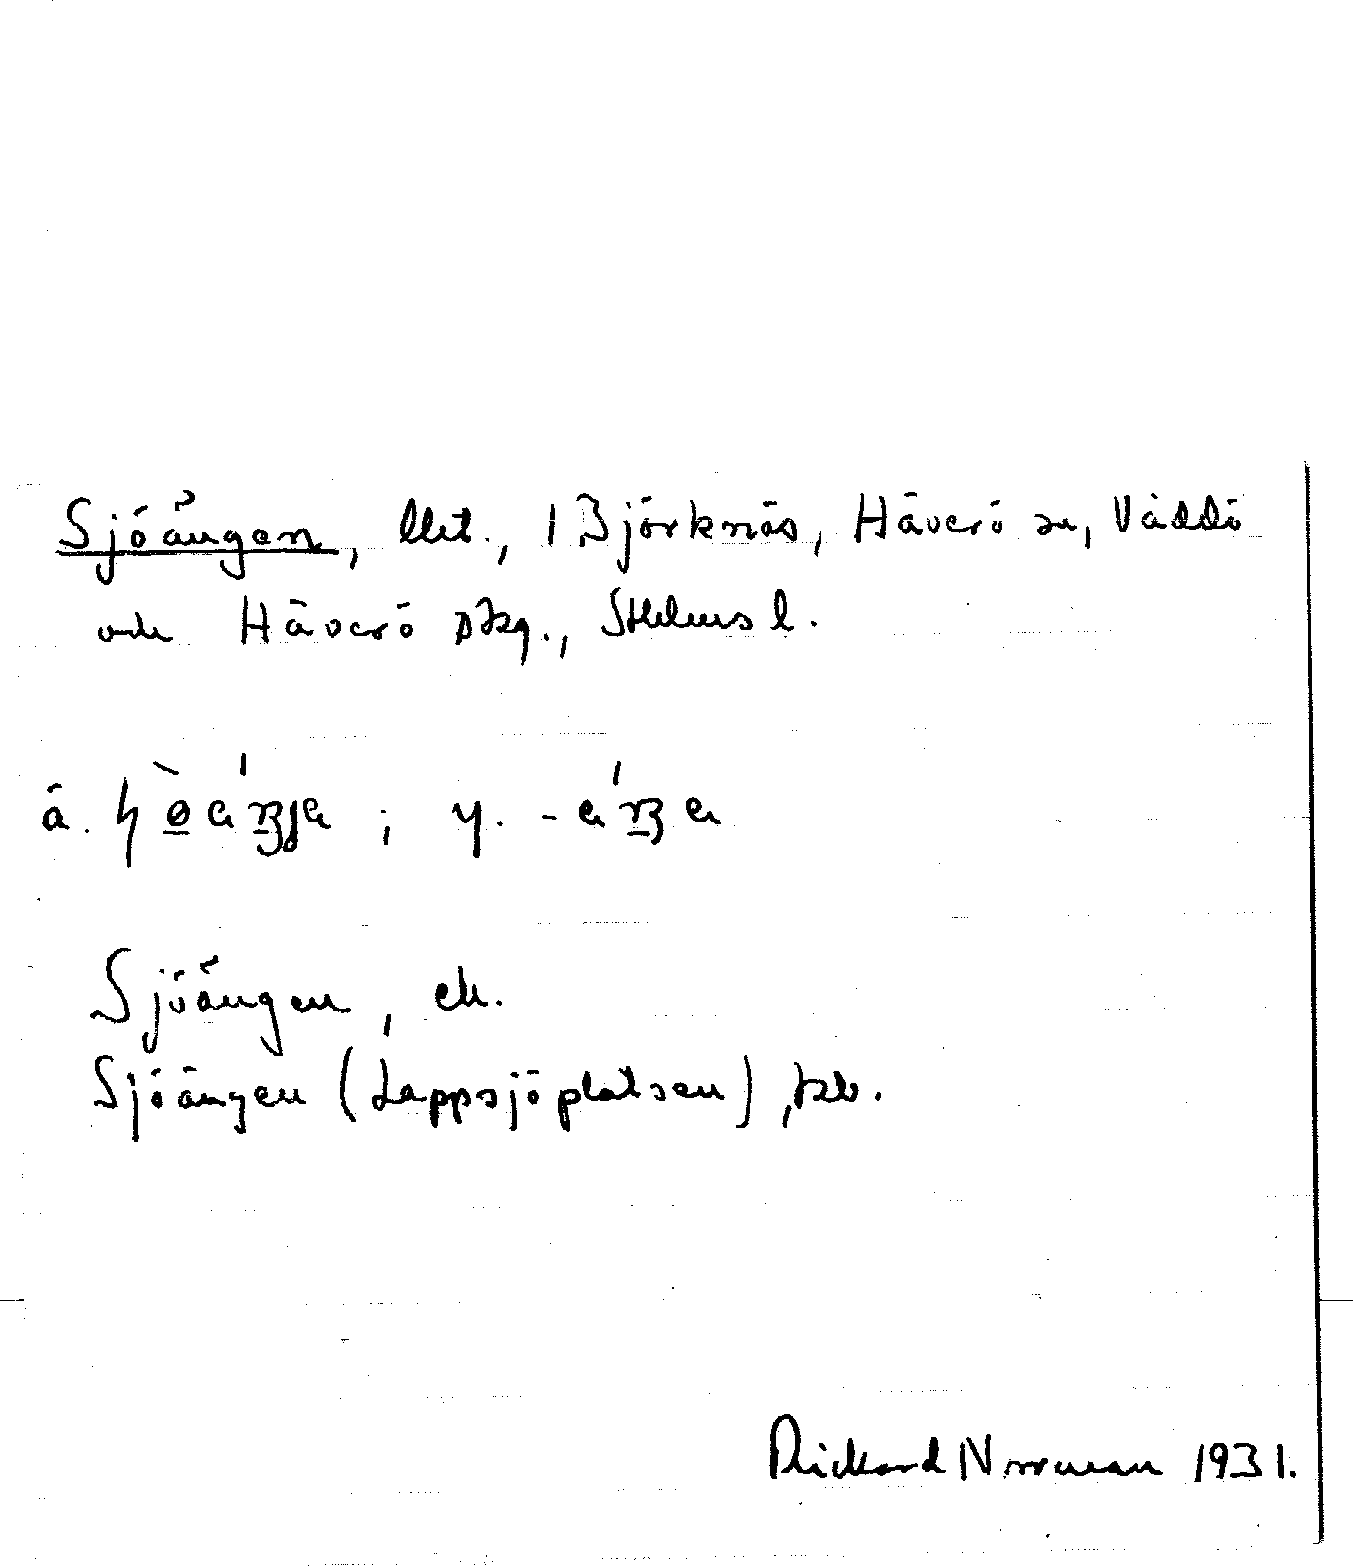 Sjöängen, lht., 1 Björknäs, Häverö sn, Väddö
och Häverö skg., Sthlms l.
ä. ; y. -
Sjöängen, ek.
Sjöängen (Lappsjöplatsen),
Rickard Norrman 1931.